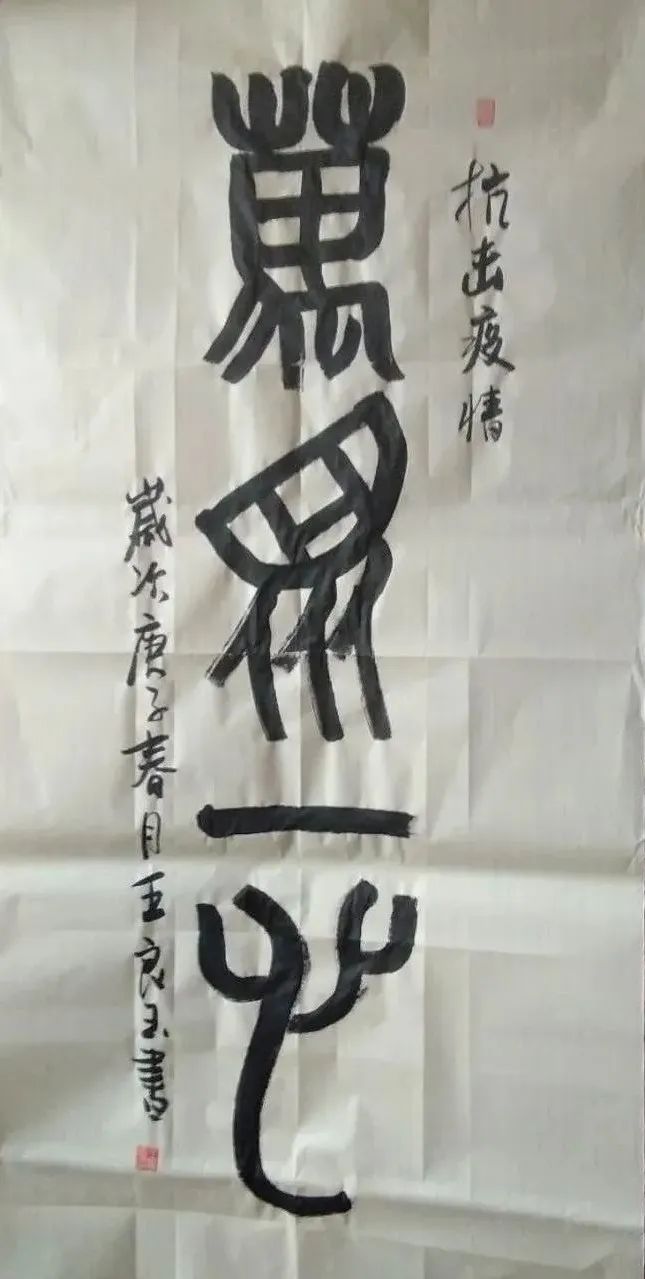 抗击疫情
萬眾一心
歲次庚子春月王良玉書